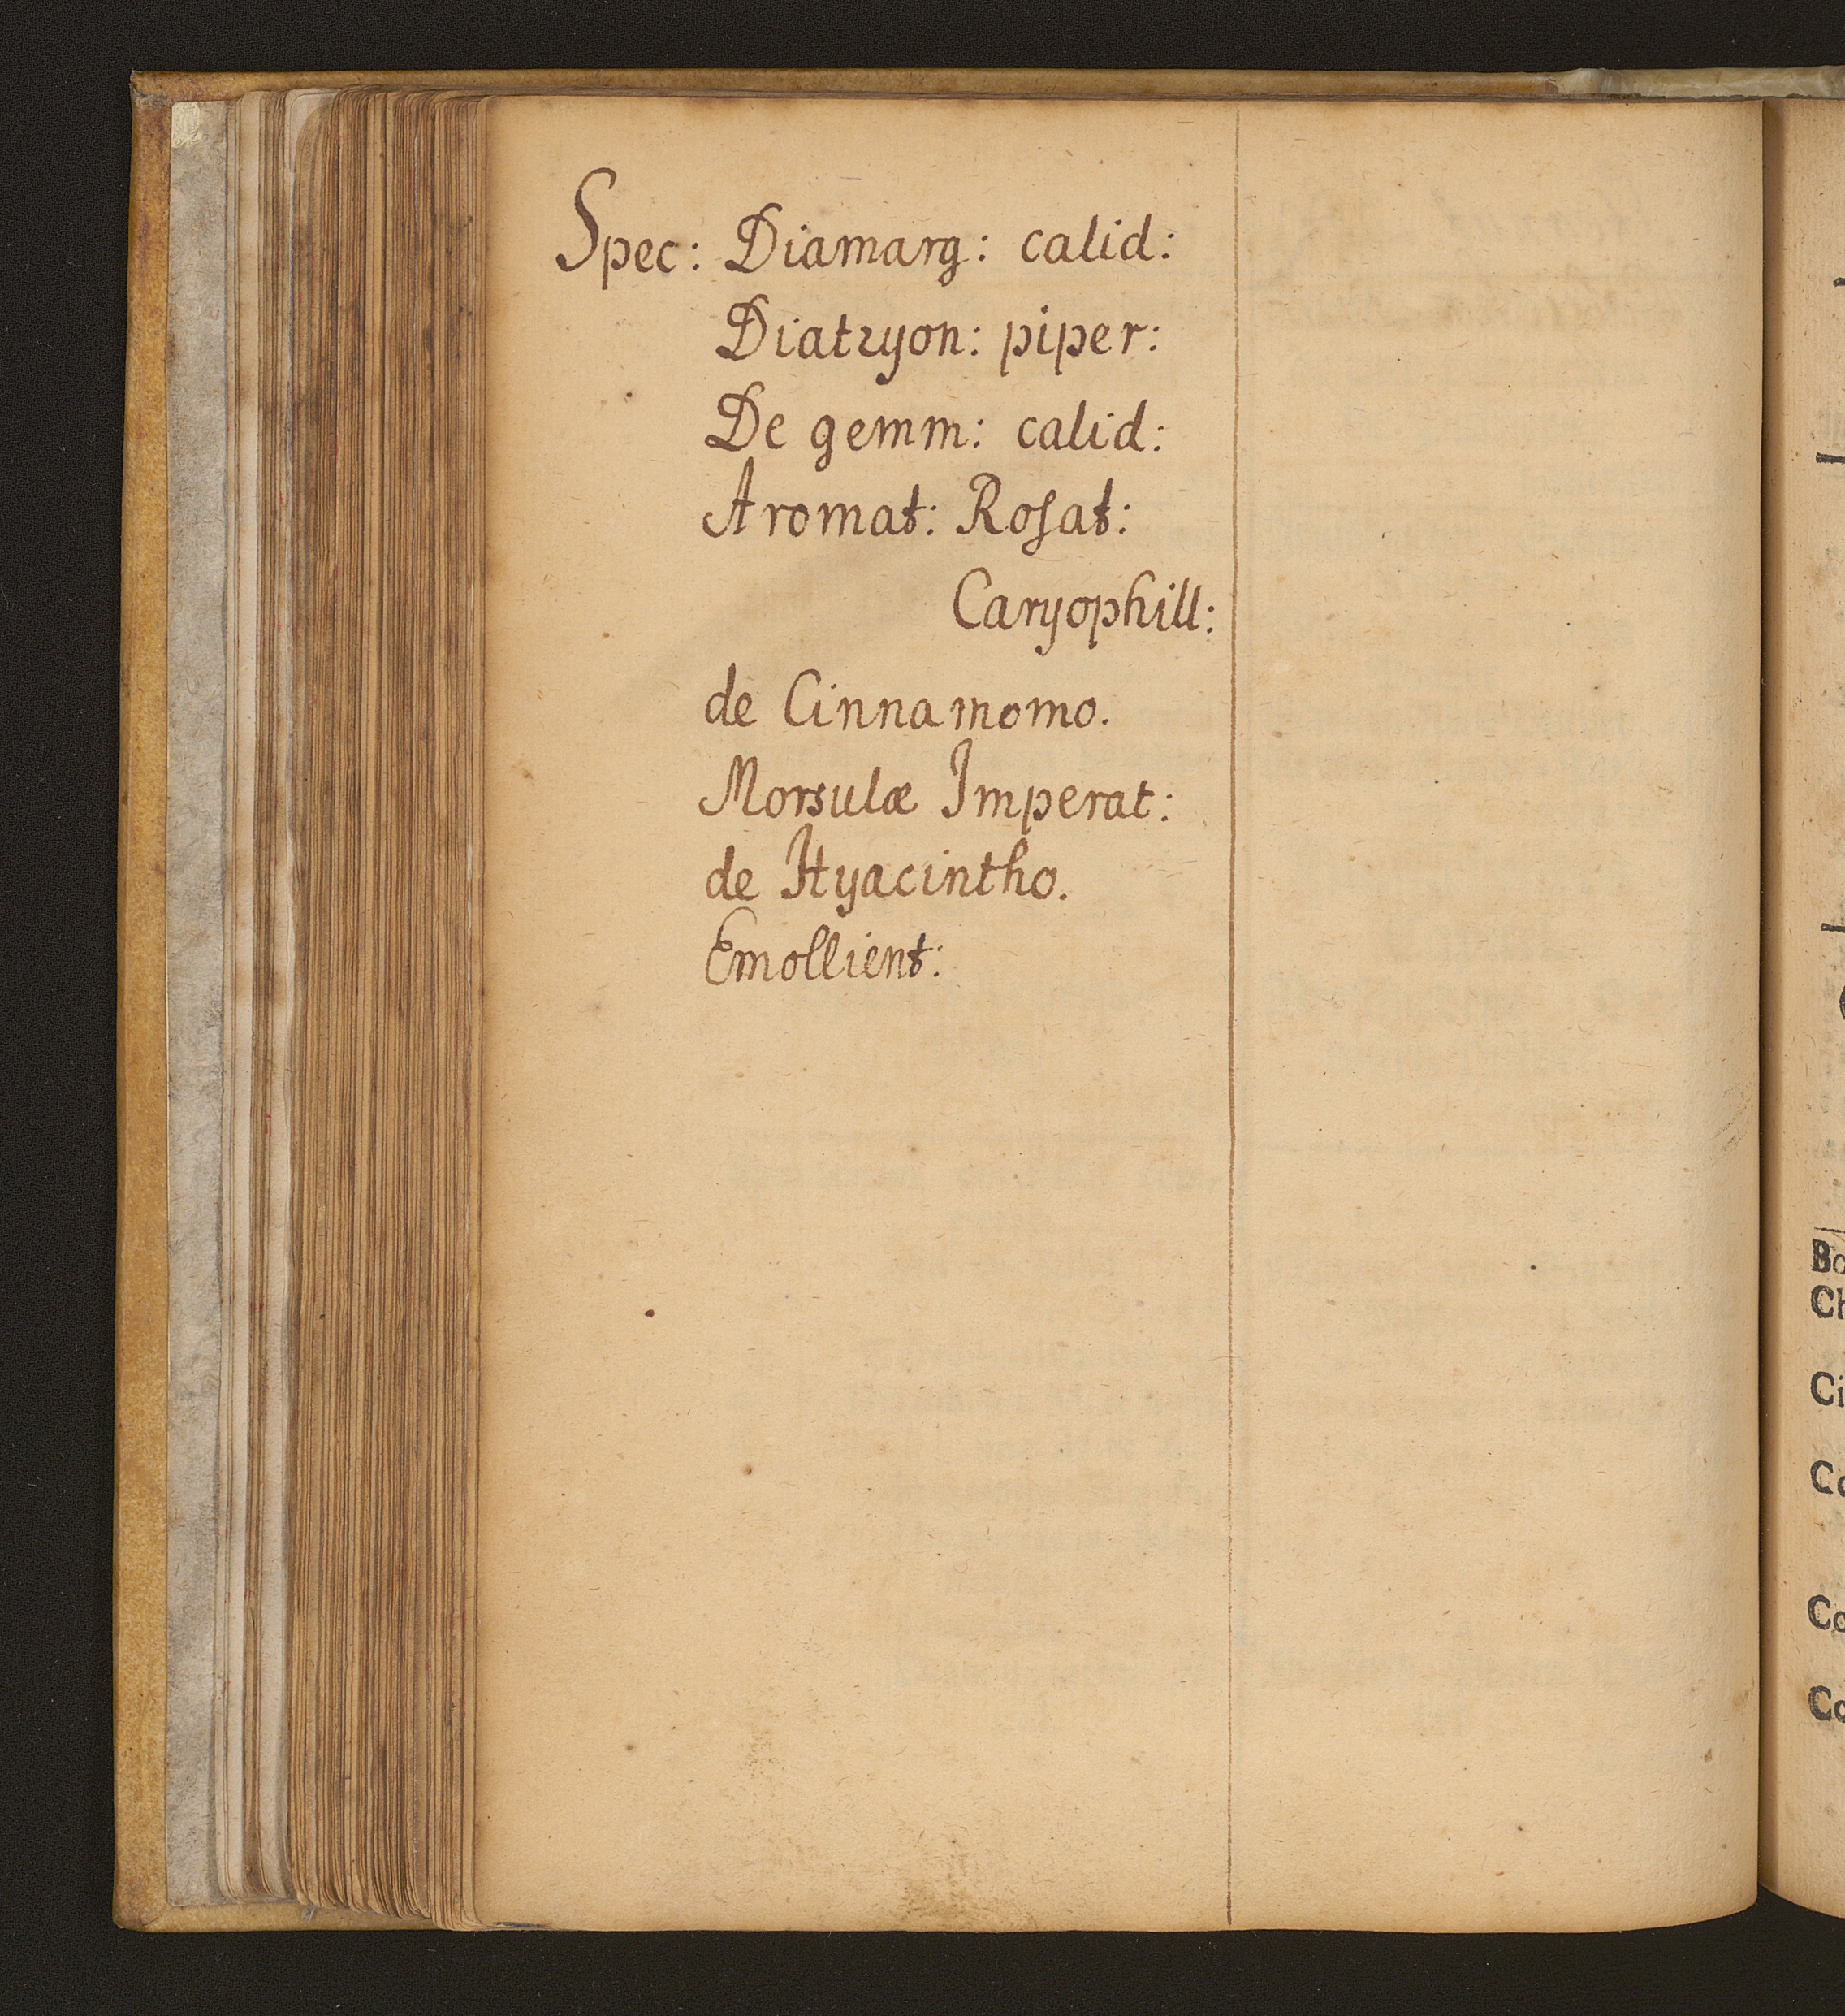 Spec: Diamarg: calid:
Diatryon: piper:
De gemm: calid:
Aromat: Rosat:
Caryophill:
de Cinnamomo.
Morsulæ Imperat:
de Hyacintho.
Emollient:
Ci